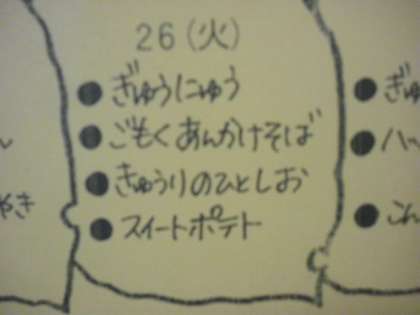 26(火)
●ぎゅうにゅう
●ごもくあんかけそば
●きゅうりのひとしお
●スイートポテト
やき
●ぎゅ
●ハ
●こん